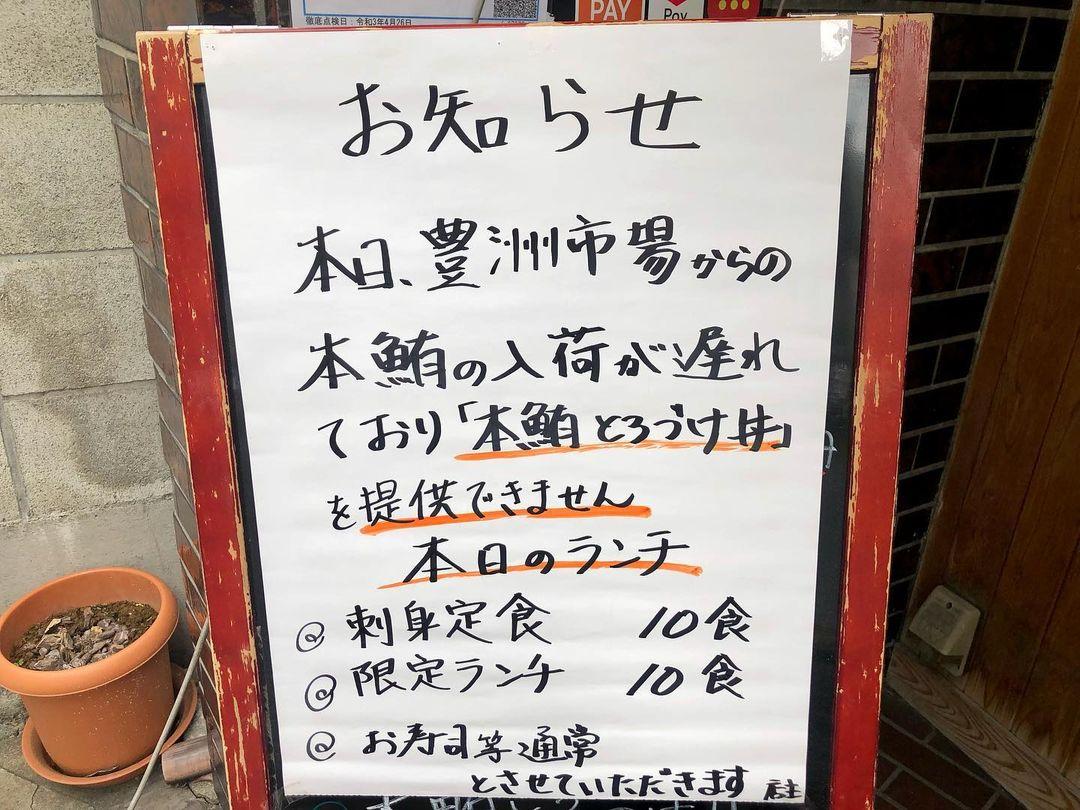 徹底点検日：令和3年4月26日
PAY
Pay
お知らせ
本日、豊洲市場からの
本鮪の入荷が遅れ
ており「本鮪とろづけ丼」
を提供できません
本日のランチ
@ 刺身定食 10食
@ 限定ランチ 10食
@ お寿司等通常
とさせていただきます 店主